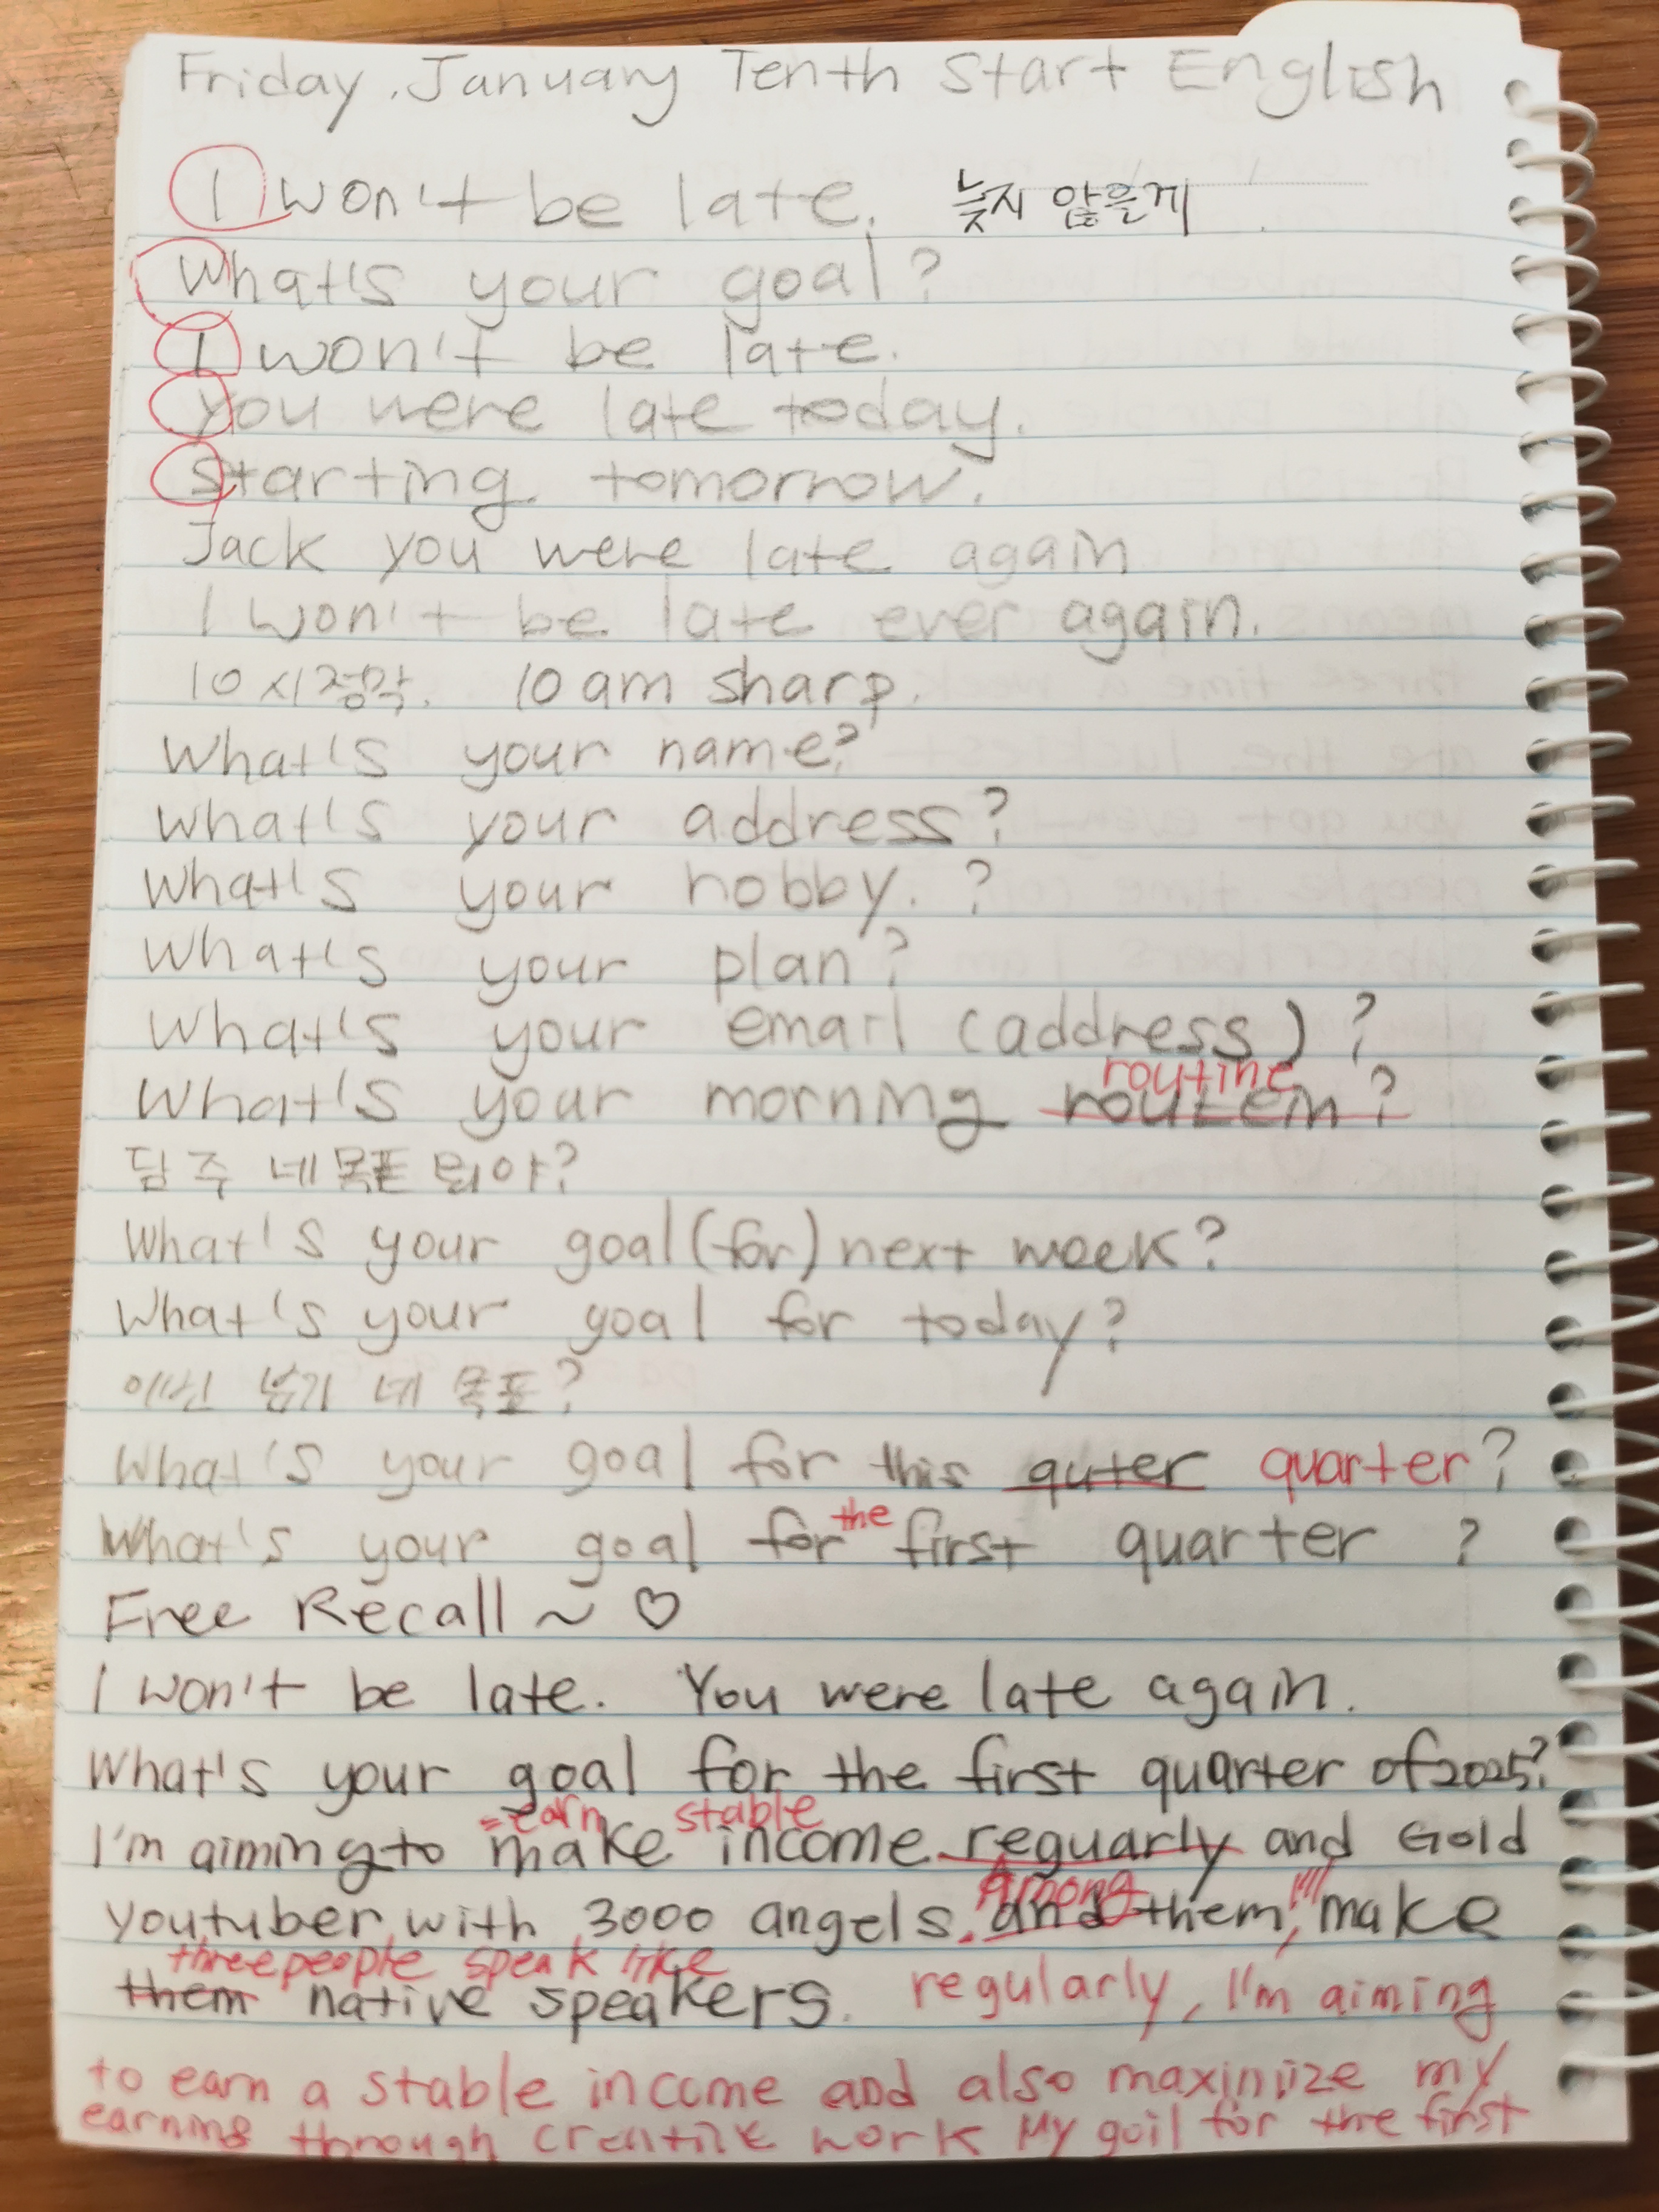 Friday, January Tenth Start English
I won't be late. 늦지 않을게
What's your goal?
I won't be late.
You were late today.
Starting tomorrow.
Jack you were late again
I won't be late ever again.
10시정각. 10am sharp.
What's your name?
What's your address?
What's your hobby. ?
What's your plan?
What's your email (address)?
routine
What's your morning routein?
담주 네 목표 뭐야?
What's your goal (for) next week?
What's your goal for today?
이번 분기 네 목표?
What's your goal for this quter quarter?
the
What's your goal for first quarter ?
Free Recall ~ ♡
I won't be late. You were late again.
What's your goal for the first quarter of 2025?
=earn stable
I'm aiming to make income reguarly and Gold
Among !!!!
youtuber with 3000 angels. and them, make
three people speak like
them native speakers. regularly, I'm aiming
to earn a stable income and also maximize my
earning through creative work My goil for the first